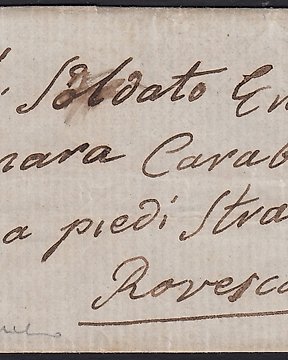 Soldato En
nara Carab
a piedi Stra
Rovesca